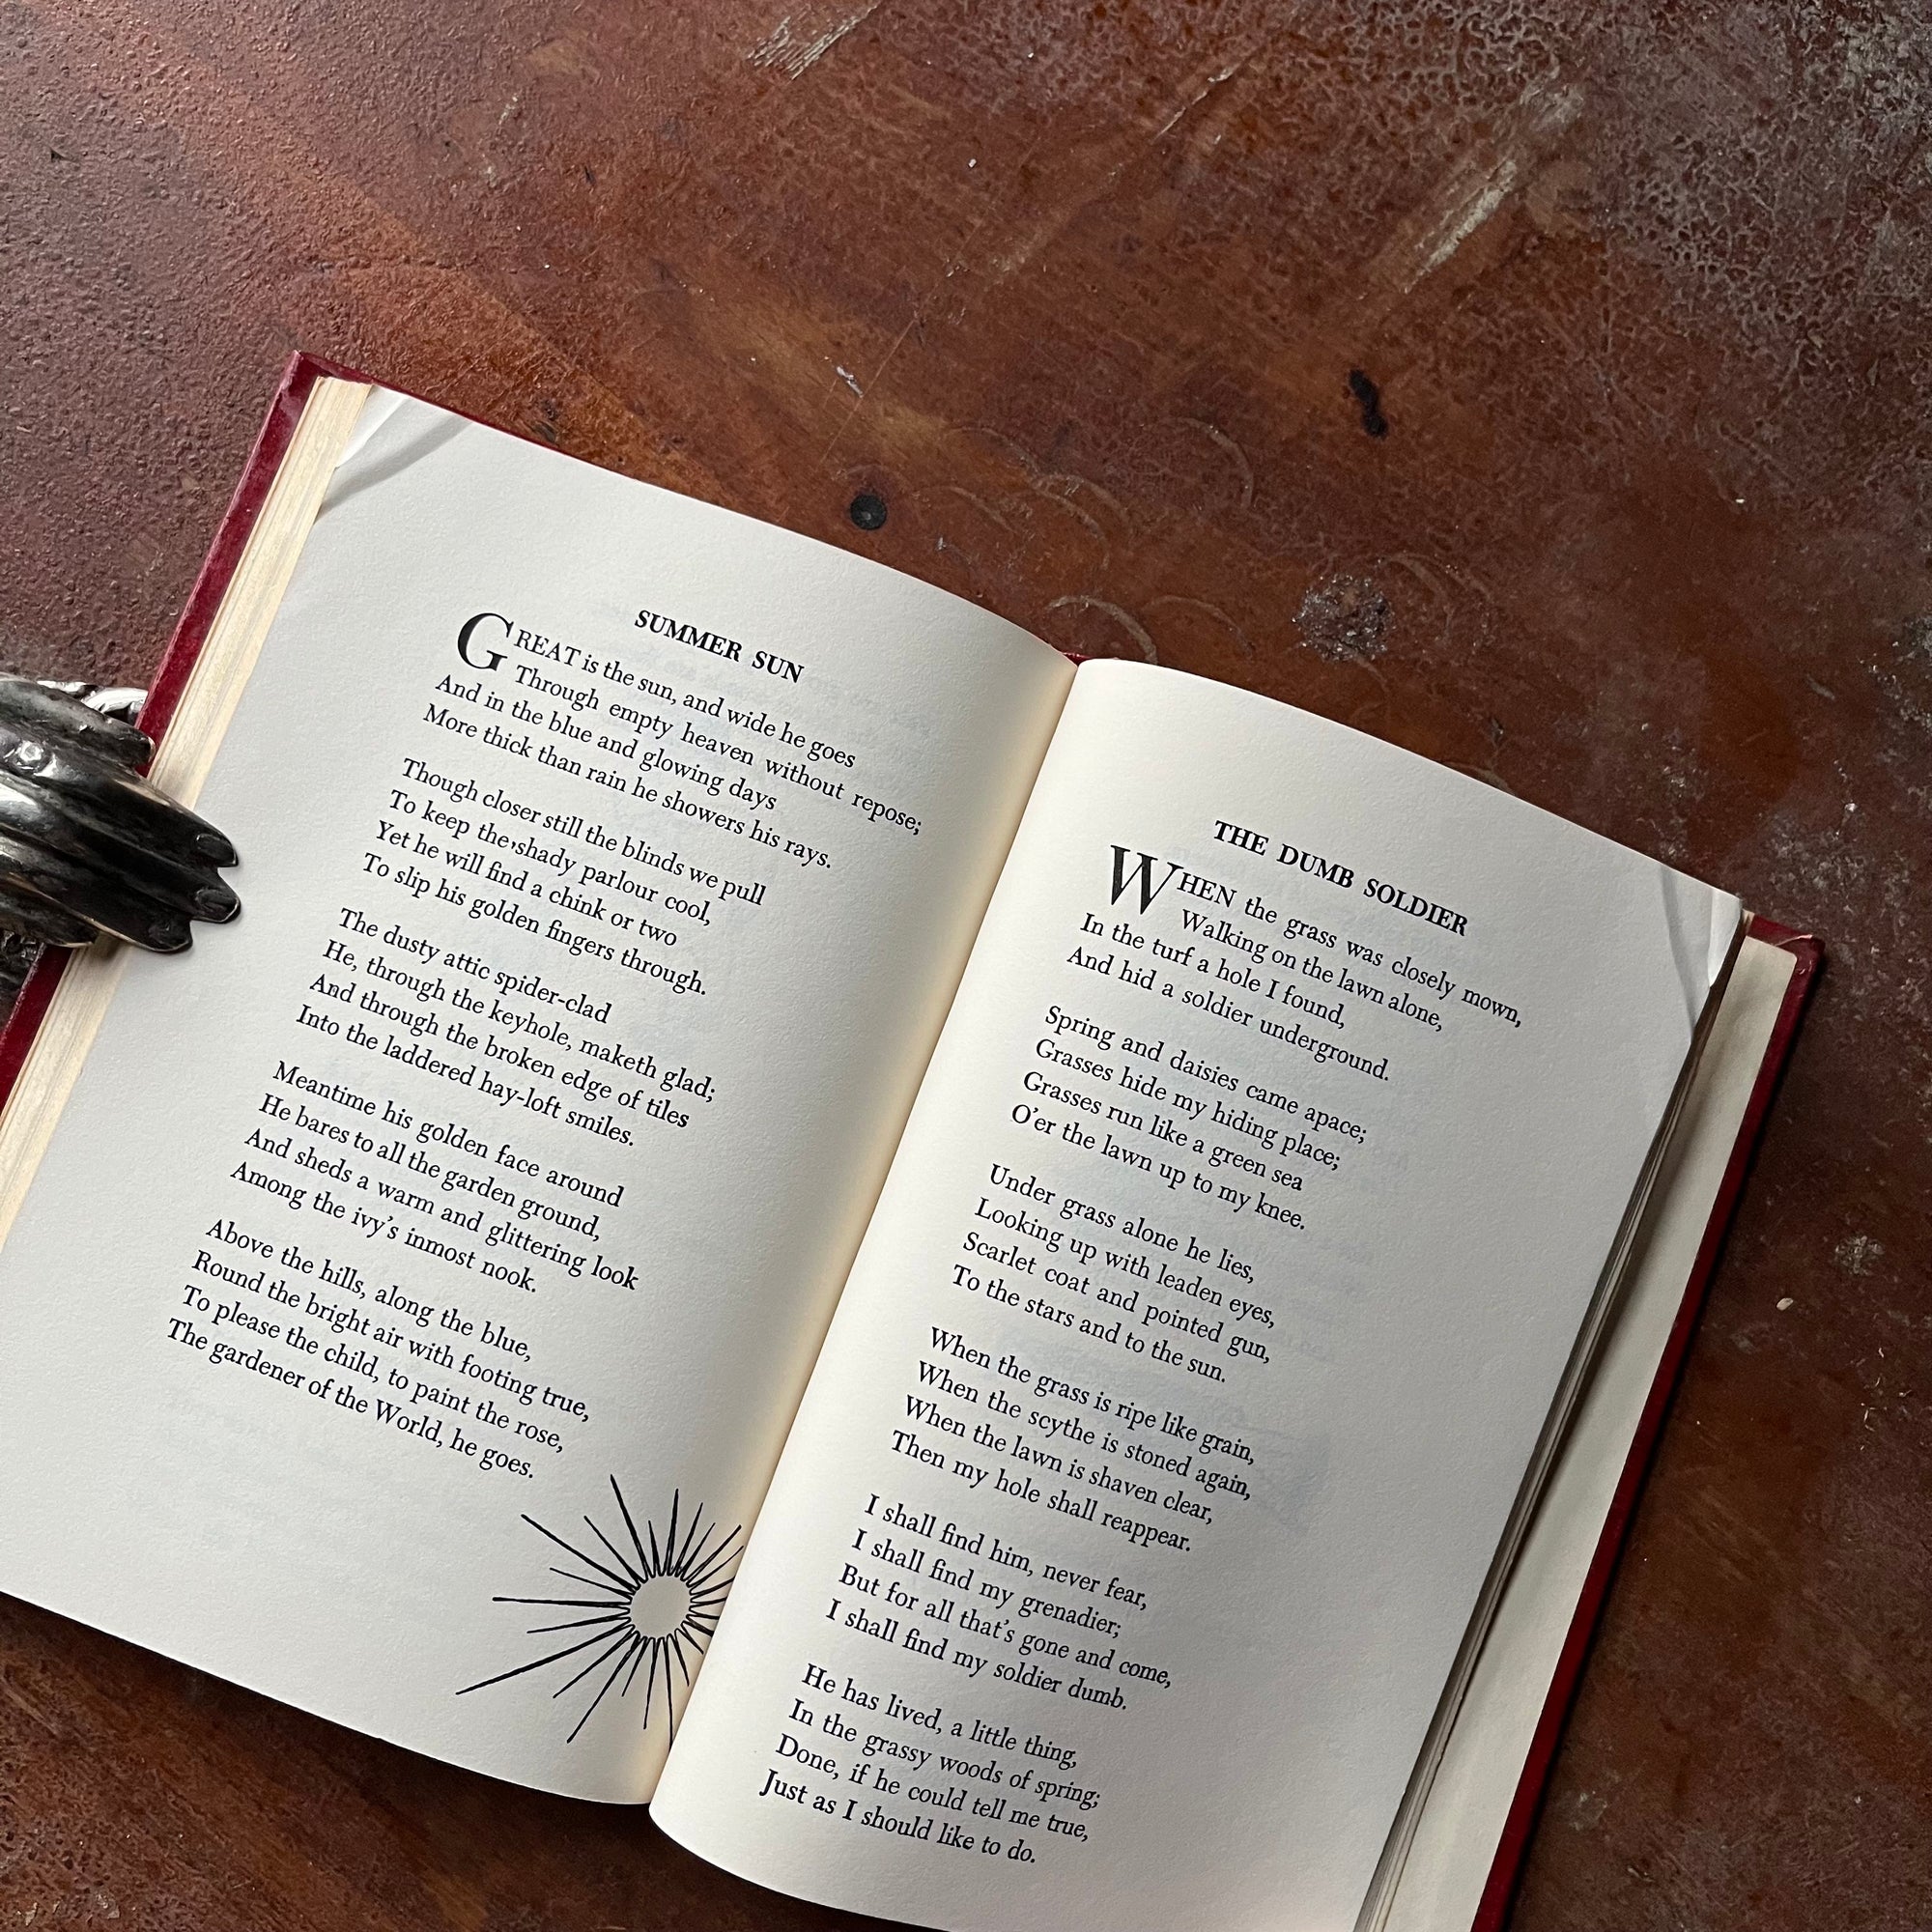 SUMMER SUN
GREAT is the sun, and wide he goes
Through empty heaven without repose;
And in the blue and glowing days
More thick than rain he showers his rays.
Though closer still the blinds we pull
To keep the shady parlour cool,
Yet he will find a chink or two
To slip his golden fingers through.
The dusty attic spider-clad
He, through the keyhole, maketh glad;
And through the broken edge of tiles
Into the laddered hay-loft smiles.
Meantime his golden face around
He bares to all the garden ground,
And sheds a warm and glittering look
Among the ivy's inmost nook.
Above the hills, along the blue,
Round the bright air with footing true,
To please the child, to paint the rose,
The gardener of the World, he goes.
THE DUMB SOLDIER
WHEN the grass was closely mown,
Walking on the lawn alone,
In the turf a hole I found,
And hid a soldier underground.
Spring and daisies came apace;
Grasses hide my hiding place;
Grasses run like a green sea
O'er the lawn up to my knee.
Under grass alone he lies,
Looking up with leaden eyes,
Scarlet coat and pointed gun,
To the stars and to the sun.
When the grass is ripe like grain,
When the scythe is stoned again,
When the lawn is shaven clear,
Then my hole shall reappear.
I shall find him, never fear,
I shall find my grenadier;
But for all that's gone and come,
I shall find my soldier dumb.
He has lived, a little thing,
In the grassy woods of spring;
Done, if he could tell me true,
Just as I should like to do.